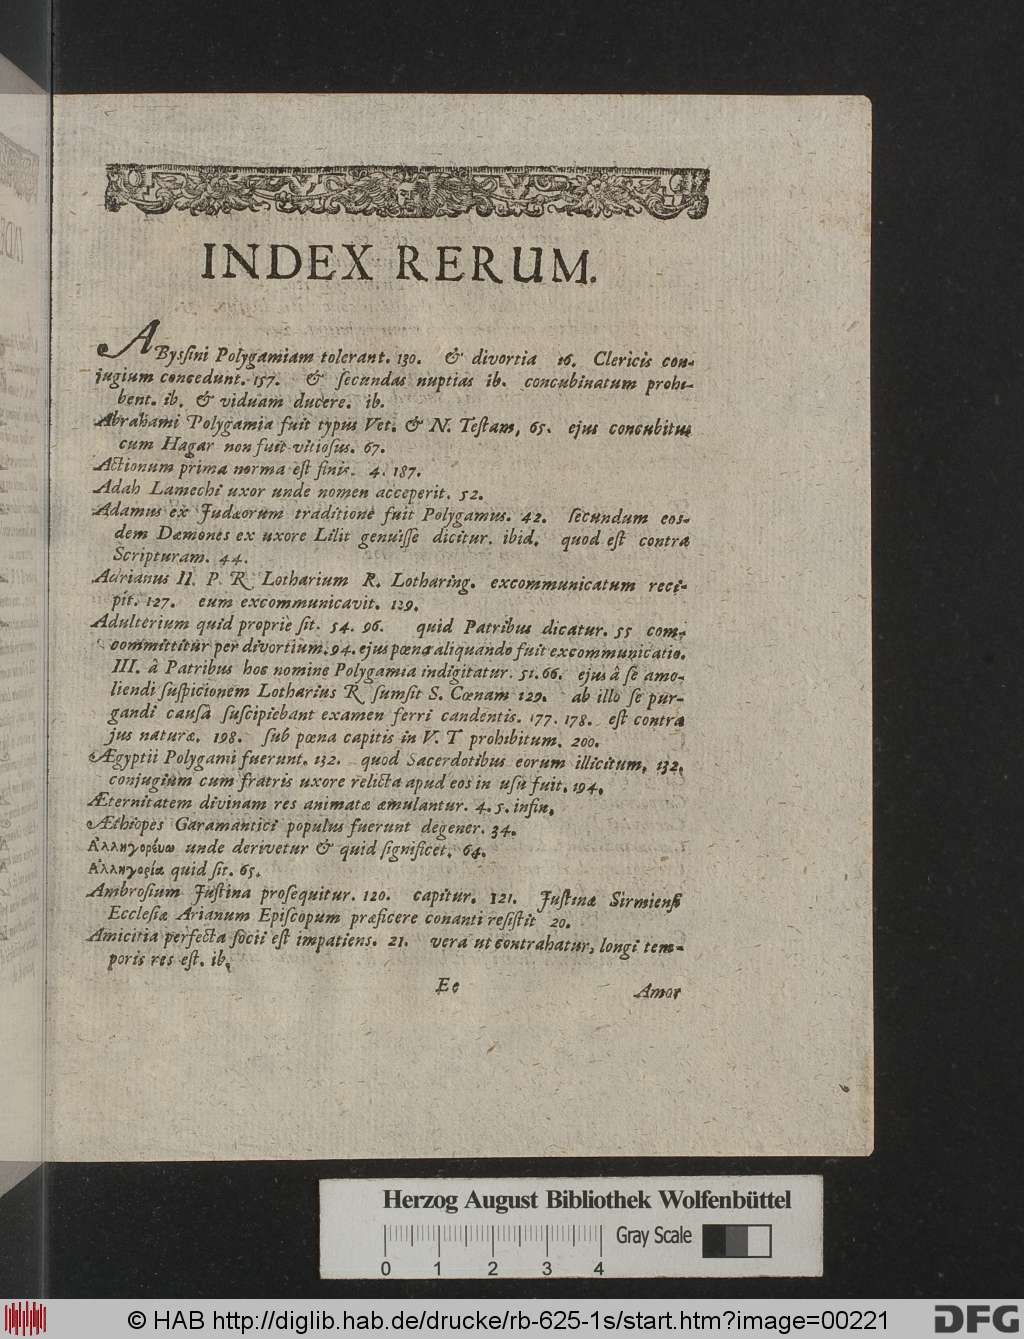 INDEX RERUM.
AByssini Polygamiam tolerant. 130. & divortia 16. Clericis con-
jugium concedunt. 157. & secundas nuptias ib. concubinatum prohi-
bent. ib. & viduam ducere. ib.
Abrahami Polygamia fuit typus Vet. & N. Testam, 65. ejus concubitus
cum Hagar non fuit vitiosus. 67.
Actionum prima norma est finis. 4. 187.
Adah Lamechi uxor unde nomen acceperit. 52.
Adamus ex Judæorum traditione fuit Polygamus. 42. secundum eos-
dem Dæmones ex uxore Lilit genuisse dicitur. ibid. quod est contra
Scripturam. 44.
Adrianus II. P. R. Lotharium R. Lotharing. excommunicatum reci-
pit. 127. eum excommunicavit. 129.
Adulterium quid propriè sit. 54. 96. quid Patribus dicatur. 55 com-
committitur per divortium. 94. ejus pœna aliquando fuit excommunicatio.
III. à Patribus hoc nomine Polygamia indigitatur. 51. 66. ejus â se amo-
liendi suspicionem Lotharius R. sumsit S. Cœnam 129. ab illo se pur-
gandi causâ suscipiebant examen ferri candentis. 177. 178. est contra
jus naturæ. 198. sub pœna capitis in V. T prohibitum. 200.
Ægyptii Polygami fuerunt. 132. quod Sacerdotibus eorum illicitum, 132,
conjugium cum fratris uxore relicta apud eos in usu fuit. 194.
Æternitatem divinam res animatæ æmulantur. 4. 5. infin.
Æthiopes Garamantici populus fuerunt degener. 34.
Ἀλληγορέυω unde derivetur & quid significet. 64.
Ἀλληγορία quid sit. 65.
Ambrosium Justina prosequitur. 120. capitur. 121. Justinæ Sirmiensi
Ecclesiæ Arianum Episcopum præficere conanti resistit 20.
Amicitia perfecta socii est impatiens. 21. vera ut contrahatur, longi tem-
poris res est. ib.
Ee Amor
Herzog August Bibliothek Wolfenbüttel
Gray Scale
0 1 2 3 4
© HAB http://diglib.hab.de/drucke/rb-625-1s/start.htm?image=00221
DFG